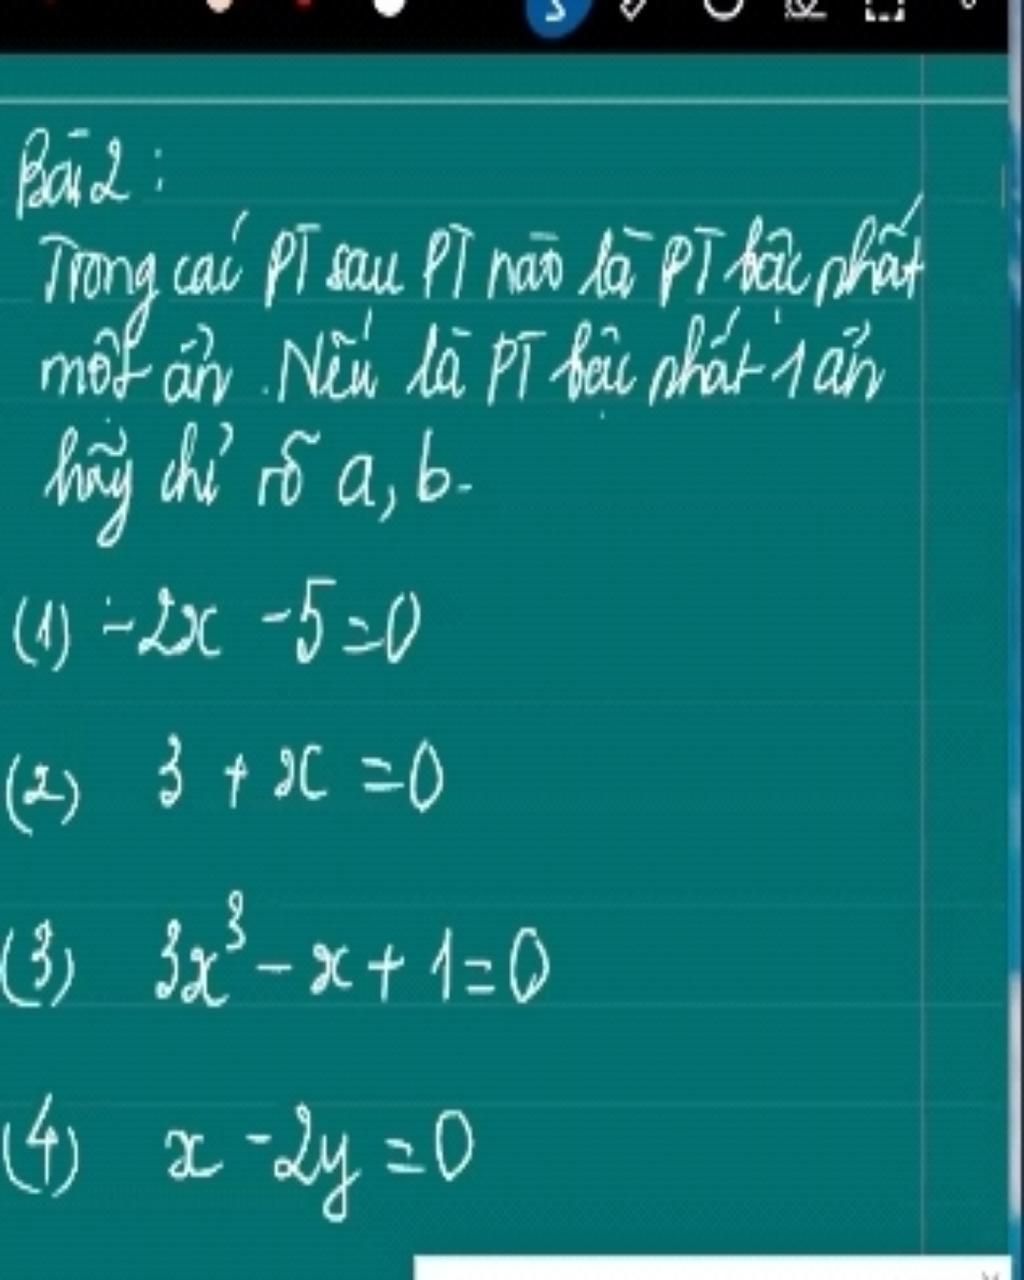 Bài 2:
Trong các PT sau PT nào là PT bậc nhất
một ẩn. Nếu là PT bậc nhất 1 ẩn
hãy chỉ rõ a, b.
(1) -2x - 5 = 0
(2) 3 + x = 0
(3) 3x³ - x + 1 = 0
(4) x - 2y = 0